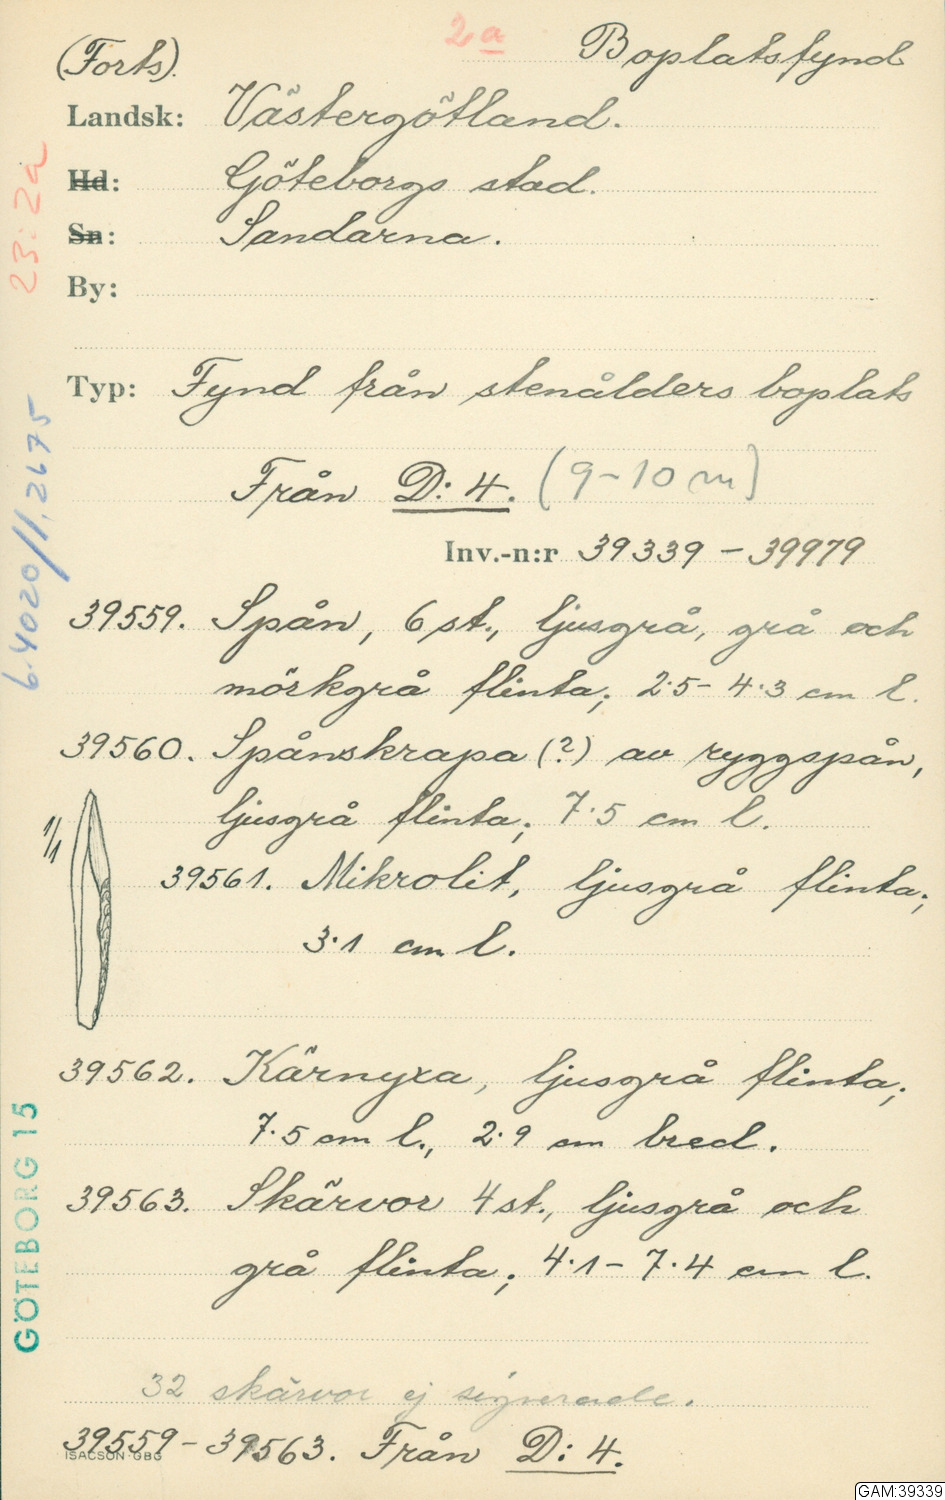 2a
(Forts).
Boplatsfynd
Landsk: Västergötland.
Hd: Göteborgs stad.
Sn: Sandarna.
By:
Typ: Fynd från stenålders boplats
Från D: 4. (9-10 m)
Inv.-n:r 39339 - 39979
39559. Spån, 6 st., ljusgrå, grå och
mörkgrå flinta; 2·5 - 4·3 cm l.
39560. Spånskrapa (?) av ryggspån,
ljusgrå flinta; 7·5 cm l.
1/1
39561. Mikrolit, ljusgrå flinta;
3·1 cm l.
39562. Kärnyxa, ljusgrå flinta;
7·5 cm l., 2·9 cm bred.
39563. Skärvor 4 st., ljusgrå och
grå flinta; 4·1 - 7·4 cm l.
32 skärvor ej signerade.
39559 - 39563. Från D: 4.
ISACSON GBG
23:2a
6.4020/1,2675
GÖTEBORG 15
GAM:39339